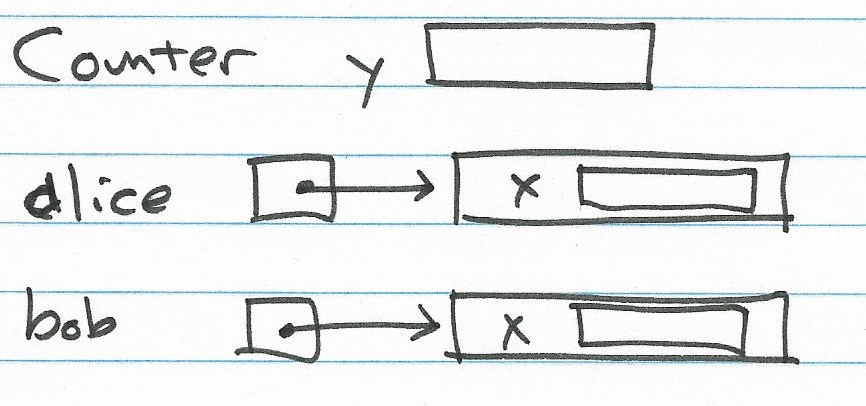 Counter y
alice x
bob x